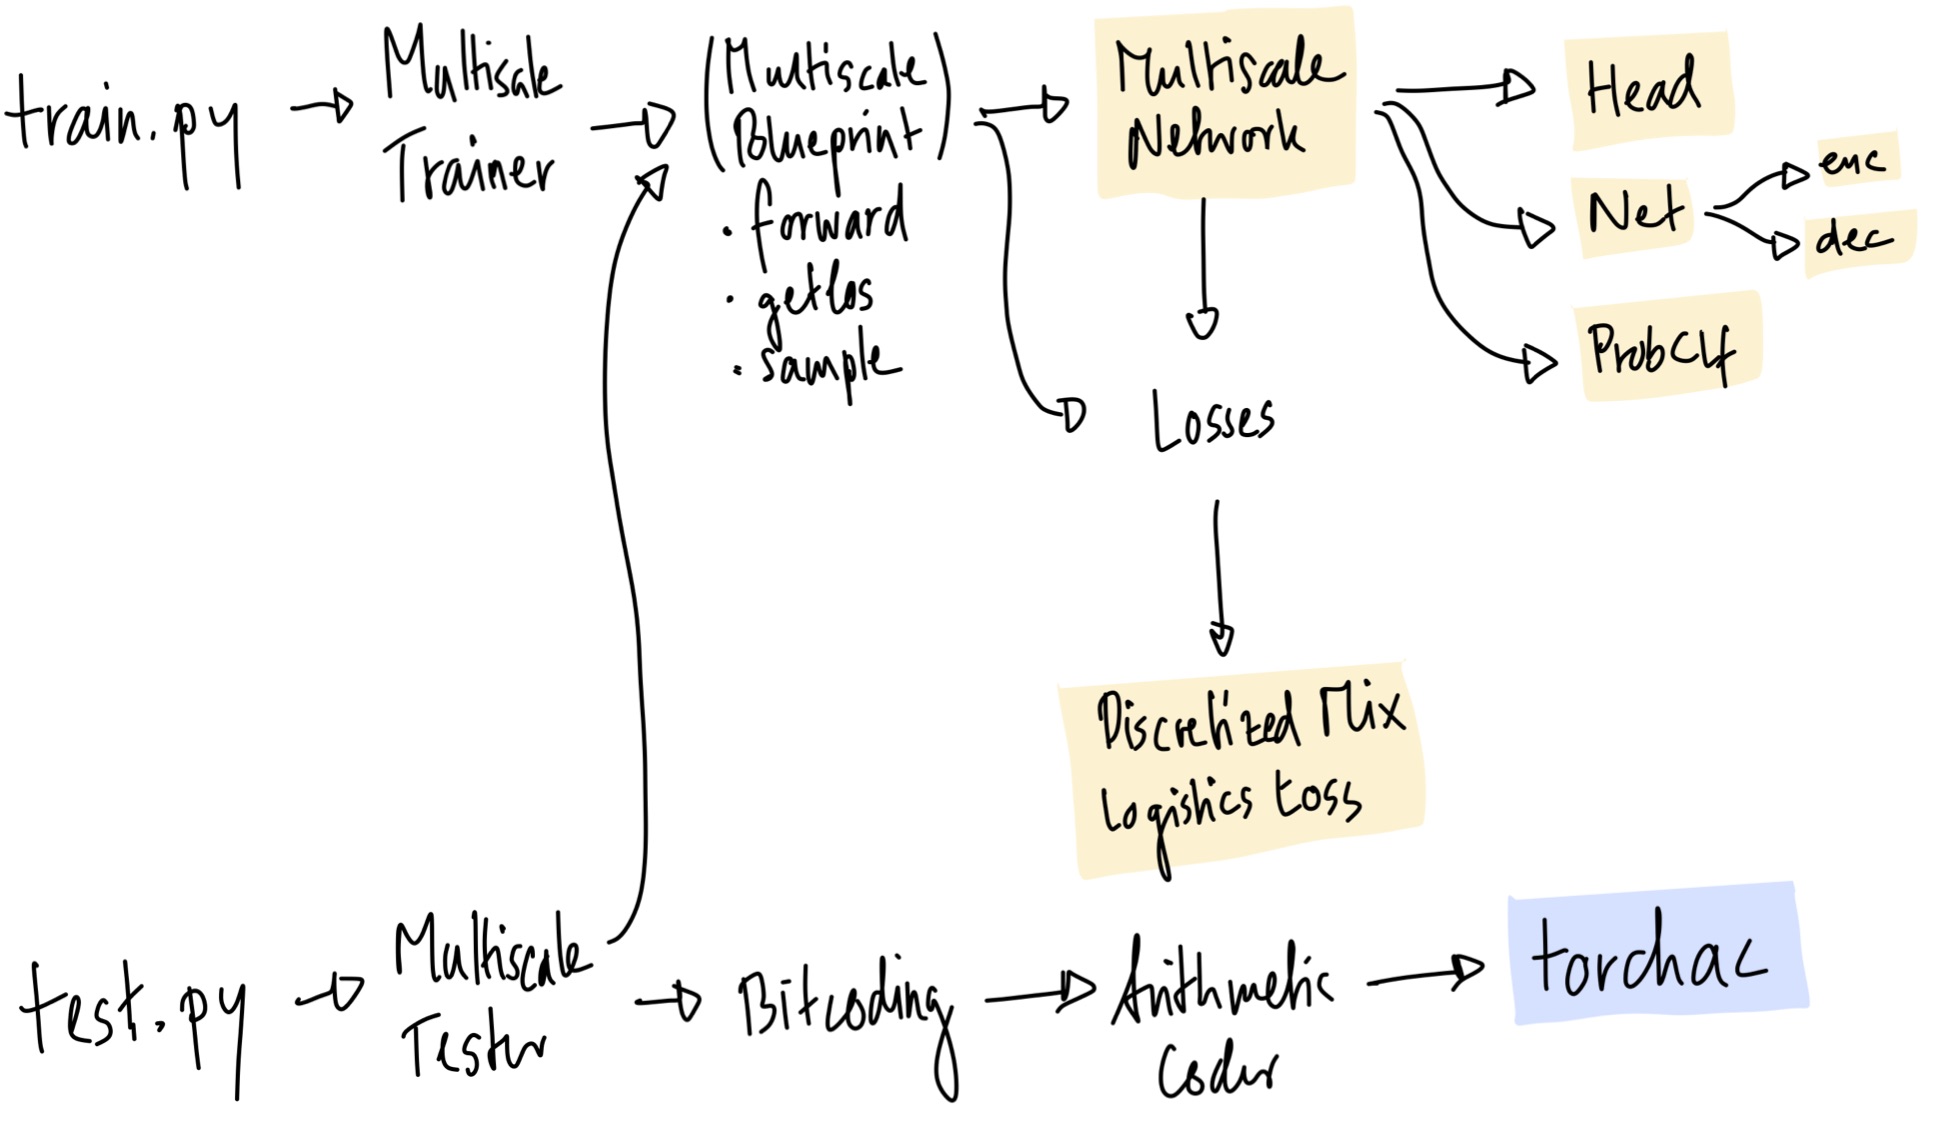 train.py
Multisale
Trainer
(Multiscale
Blueprint)
. forward
. getlos
. sample
Multiscale
Network
Head
Net
enc
dec
ProbClf
Losses
Discretized Mix
Logistics Loss
test.py
Multiscale
Tester
Bitcoding
Arithmetic
Coder
torchac